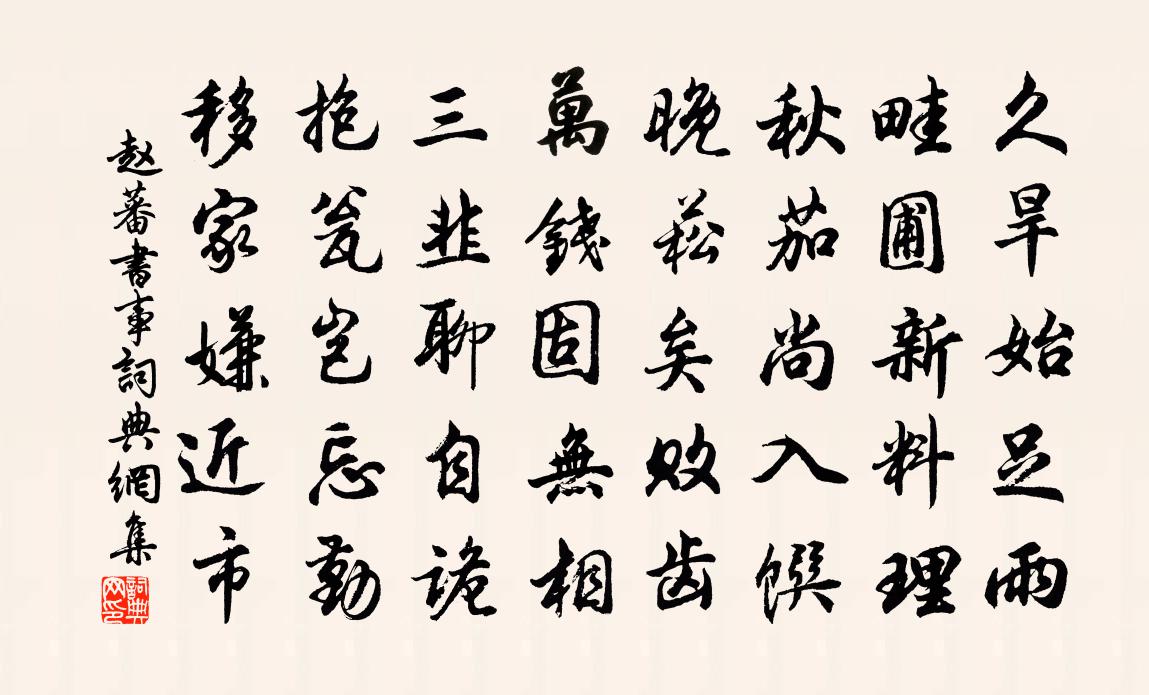 久旱始足雨
畦圃新料理
秋茄尚入馔
晚菘矣败齿
萬錢固無相
三韭聊自詭
抱瓮豈忘勤
移家嫌近市
赵蕃書事詞典網集
詞典网印